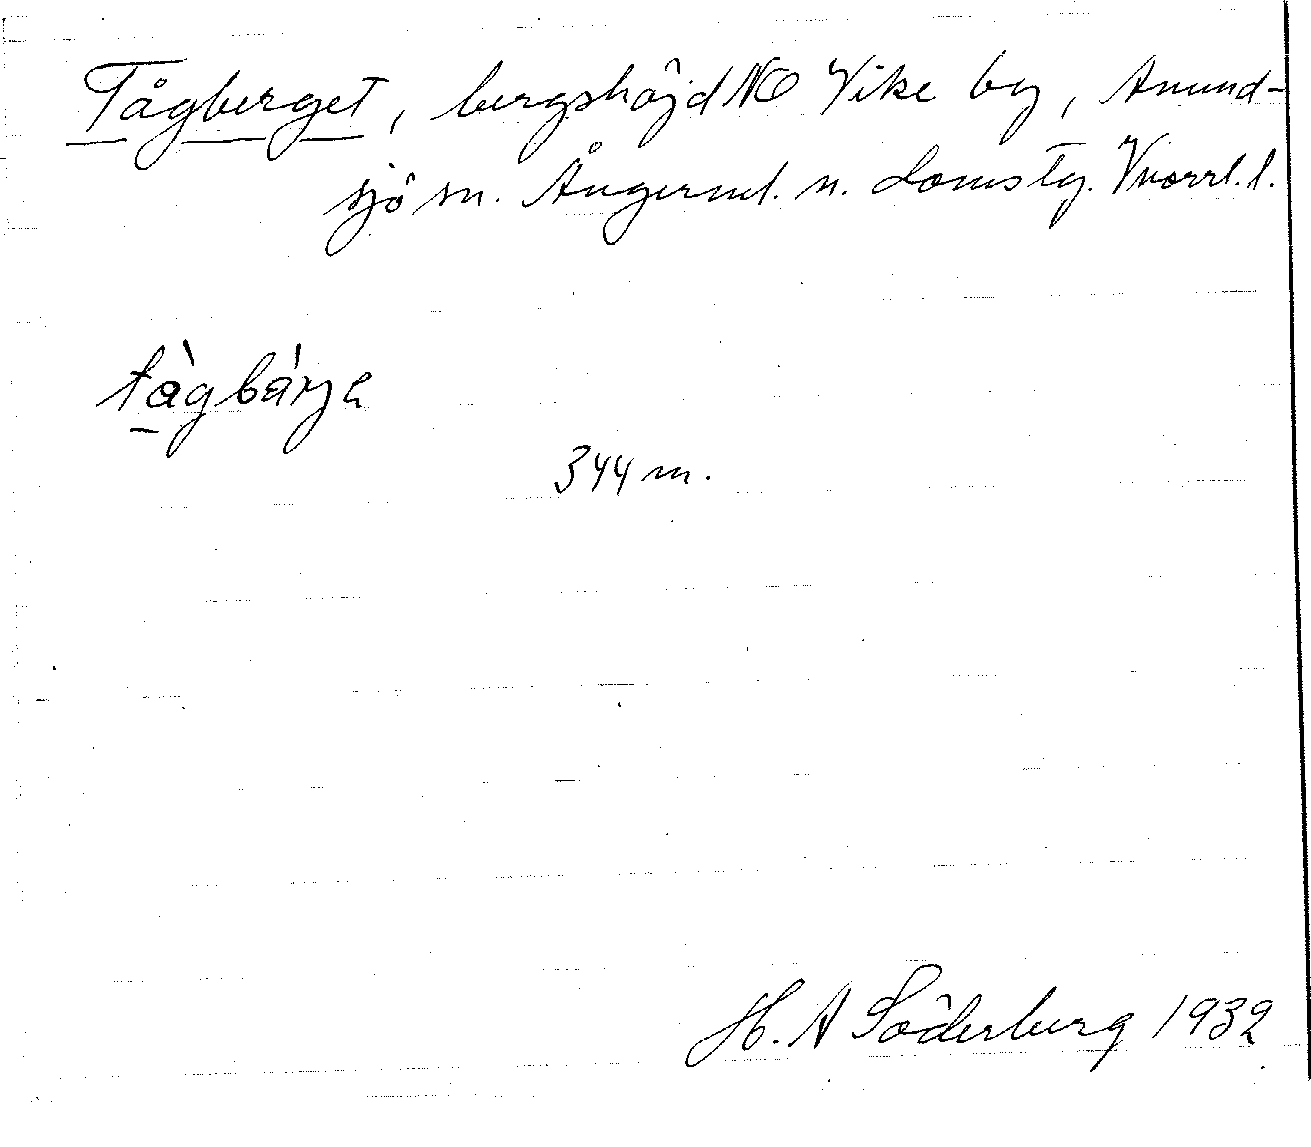 Tågberget, bergshöjd NO Vike by, Anund-
sjö sn. Ångerml. n. domstg. Vnorrl. l.
tàgbárje
344 m.
H. A Söderberg 1932